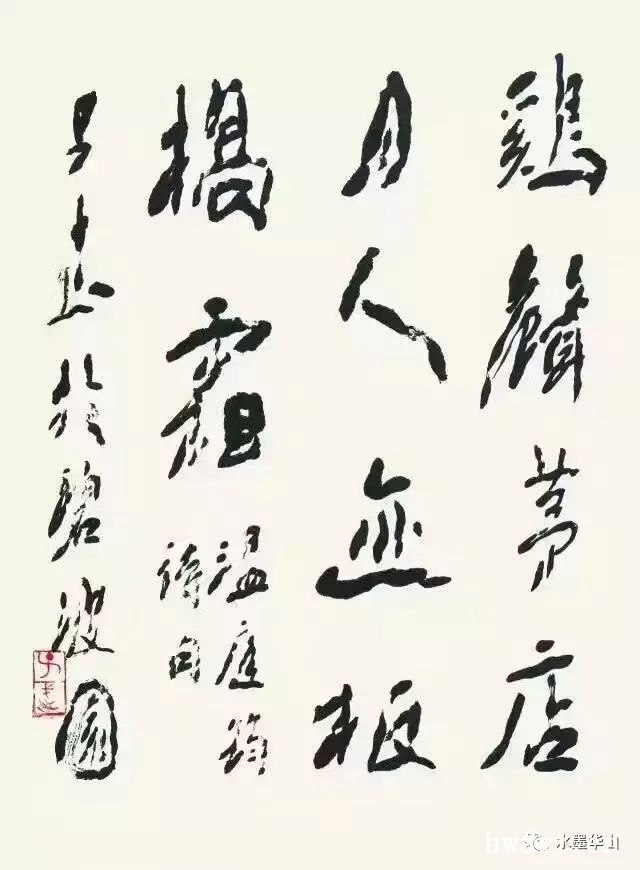 鷄聲茅店
月人迹板
橋霜
溫庭筠
詩句
於碧波園
水墨华山